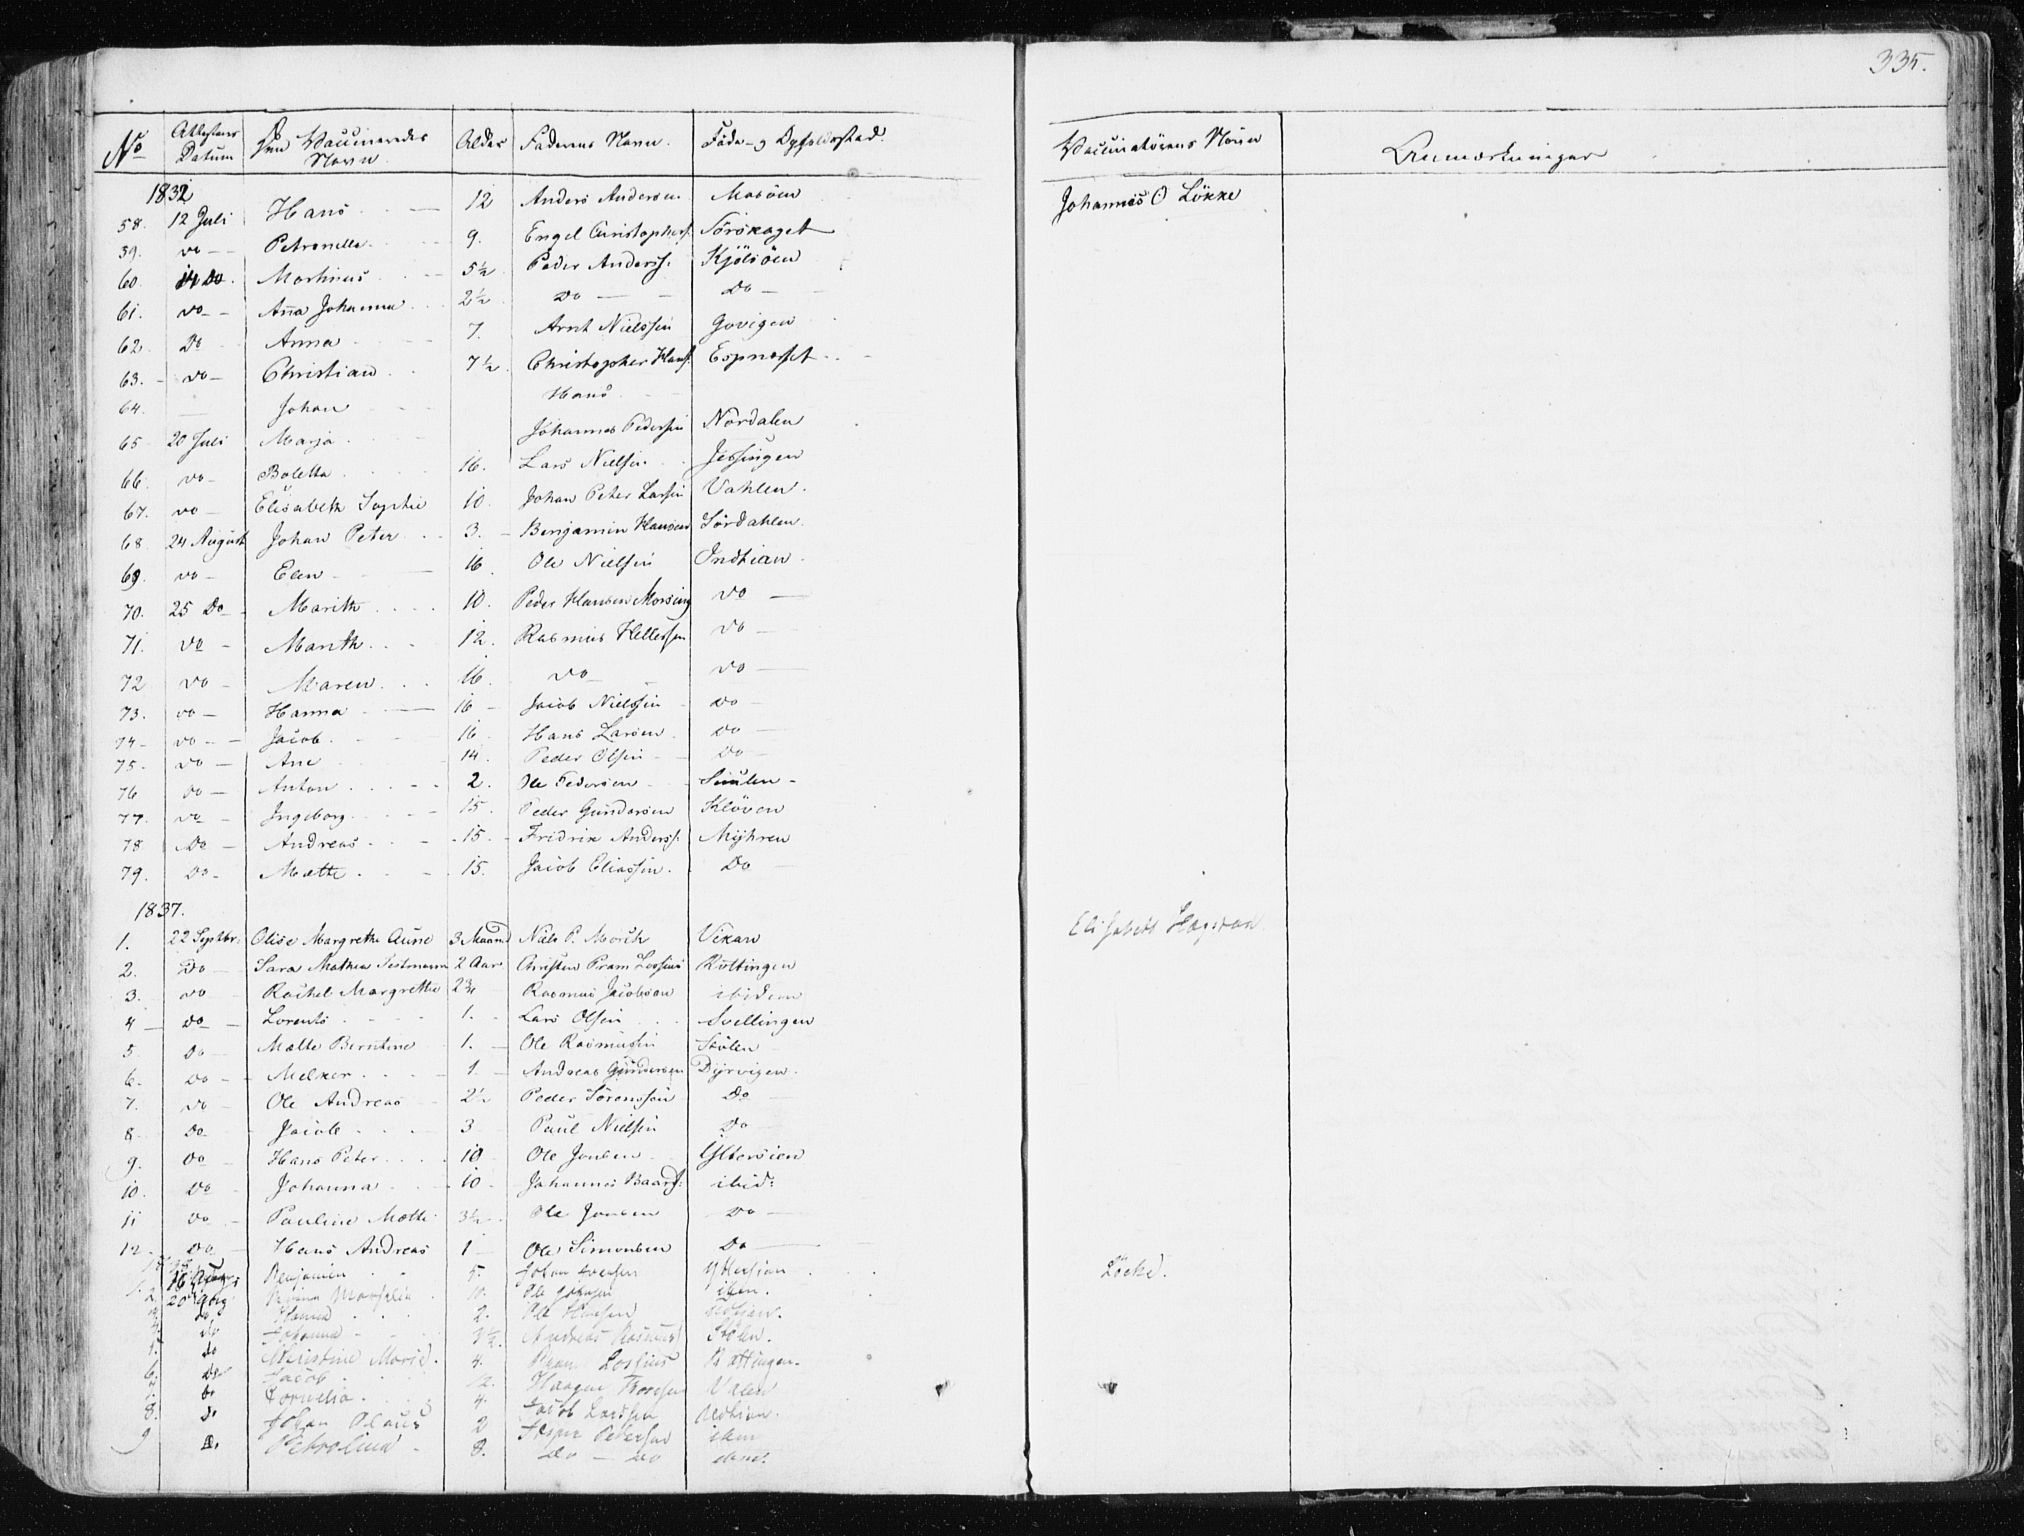 335.
No | Attestens Datum | Den Vaccineredes Navn | Alder | Faderens Navn. | Føde- og Opholdsstad. | Vaccinatørens Navn | Anmærkninger
1832
58. 12 Juli Hans 12 Anders Andersen Masöen Johannes O Lökke
59. do Petronelle 9. Engel Christophers. Sörskaget
60. 14 Do Martinus 5½ Peder Anderss. Kjölsöen
61. do Aña Johanna 2½ do Do
62. Do Anna 7. Arnt Nielssen Govigen
63. do Christian 7½ Christopher Hans. Espnæsset
64. Johan Hans
65. 20 Juli Marja Johannes Pedersen Nordalen
66. do Boletta 16. Lars Nielsen Jessingen
67. do Elisabeth Sophie 10. Johan Peter Larsen Vahlen.
68. 24 August Johan Peter 3. Benjamin Hansen Sördahlen.
69. do Elen 16 Ole Nielsen Indtian
70. 25 Do Marith 10. Peder Hansen Morsing do
71. do Marith 12. Rasmus Hellessen do
72 do Maren 16. do do
73. do Hanna 16 Jacob Nielssen do
74 do Jacob 16. Hans Larsen do
75 do Ane 14. Peder Olsen Do
76 do Anton 2. Ole Pedersen
77. do Ingeborg 15. Peder Gundersen Klöven
78. Do Andreas 15. Fridrik Anderss. Mÿhren
79. Do Mette 15. Jacob Eliassen Do
1837.
1. 22 Septbr. Olise Margrethe Aune 3 Maaned Niels P. Morith Vikan Elisabeth Hagstan
2. Do Sara Mathea Sestmann 2 Aar Christen Pram Lossius Röttingen
3. do Rachel Margrethe 2¾ Rasmus Jacobsen ibidem
4 do Lorents 1. Lars Olsen Svellingen
5. Do Mette Berntine 1. Ole Rasmusen Stölen
6. Do Melker 1 Andreas Gundersen Dyrvigen.
7. do Ole Andreas 2½ Peder Sörenssen Do
8. Do Jacob 3 Paul Nielsen Do
9. do Hans Peter 10 Ole Jonsen Ytersien
10. Do Johanna 10. Johannes Baards. ibid:
11 do Pauline Mette 3½ Ole Jonsen Do
12. Do Hans Andreas 1 Ole Simonsen Do
1. 16 Benjamin 5. Johan Ytersian Löcke.
2. 20 10. Ole Johnsen iben.
3. do Hanna 2. Ole Hansen
4. do Johanna 3½. Andreas Rasmus Stölen.
5. do Christine Marie. 4. Pram Lossius Röttingen.
6. Do Jacob 12. Haagen Valen
7. do Cornelia 4. Jacob Larssen
8. do Johan 2 Pedersen iben
9 do Petroline 8. Do do